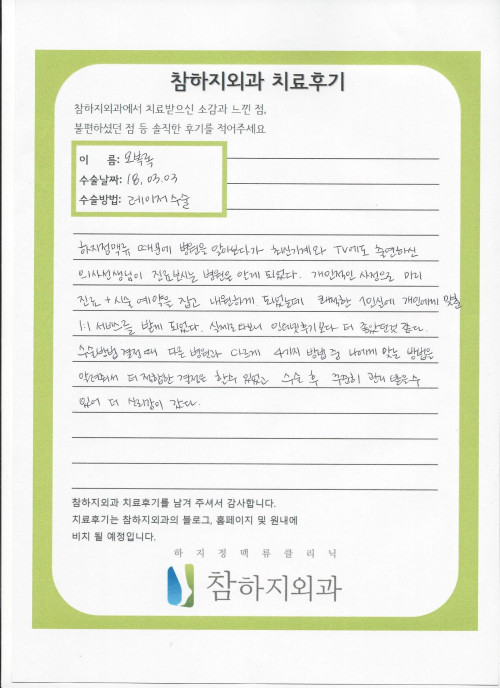 참하지외과 치료후기
참하지외과에서 치료받으신 소감과 느낀 점,
불편하셨던 점 등 솔직한 후기를 적어주세요
이 름:
수술날짜: 18. 03. 03
수술방법: 레이저수술
하지정맥류 때문에 병원을 알아보다가 최신기계와 TV에도 출연하신
의사선생님이 진료보시는 병원을 알게 되었다. 개인적인 사정으로 미리
진료 + 시술 예약을 잡고 내원하게 되었는데 쾌적한 1인실에 개인에게 맞춤
1:1 서비스를 받게 되었다. 실제로 와보니 인터넷후기보다 더 좋았던것 같다.
수술방법 결정 때 다른 병원과 다르게 4가지 방법 중 나에게 맞는 방법을
알려줘서 더 적합한 결정을 할수 있었고 수술 후 꾸준히 관리 받을수
있어 더 신뢰감이 갔다.
참하지외과 치료후기를 남겨 주셔서 감사합니다.
치료후기는 참하지외과의 블로그, 홈페이지 및 원내에
비치 될 예정입니다.
하지정맥류클리닉
참하지외과